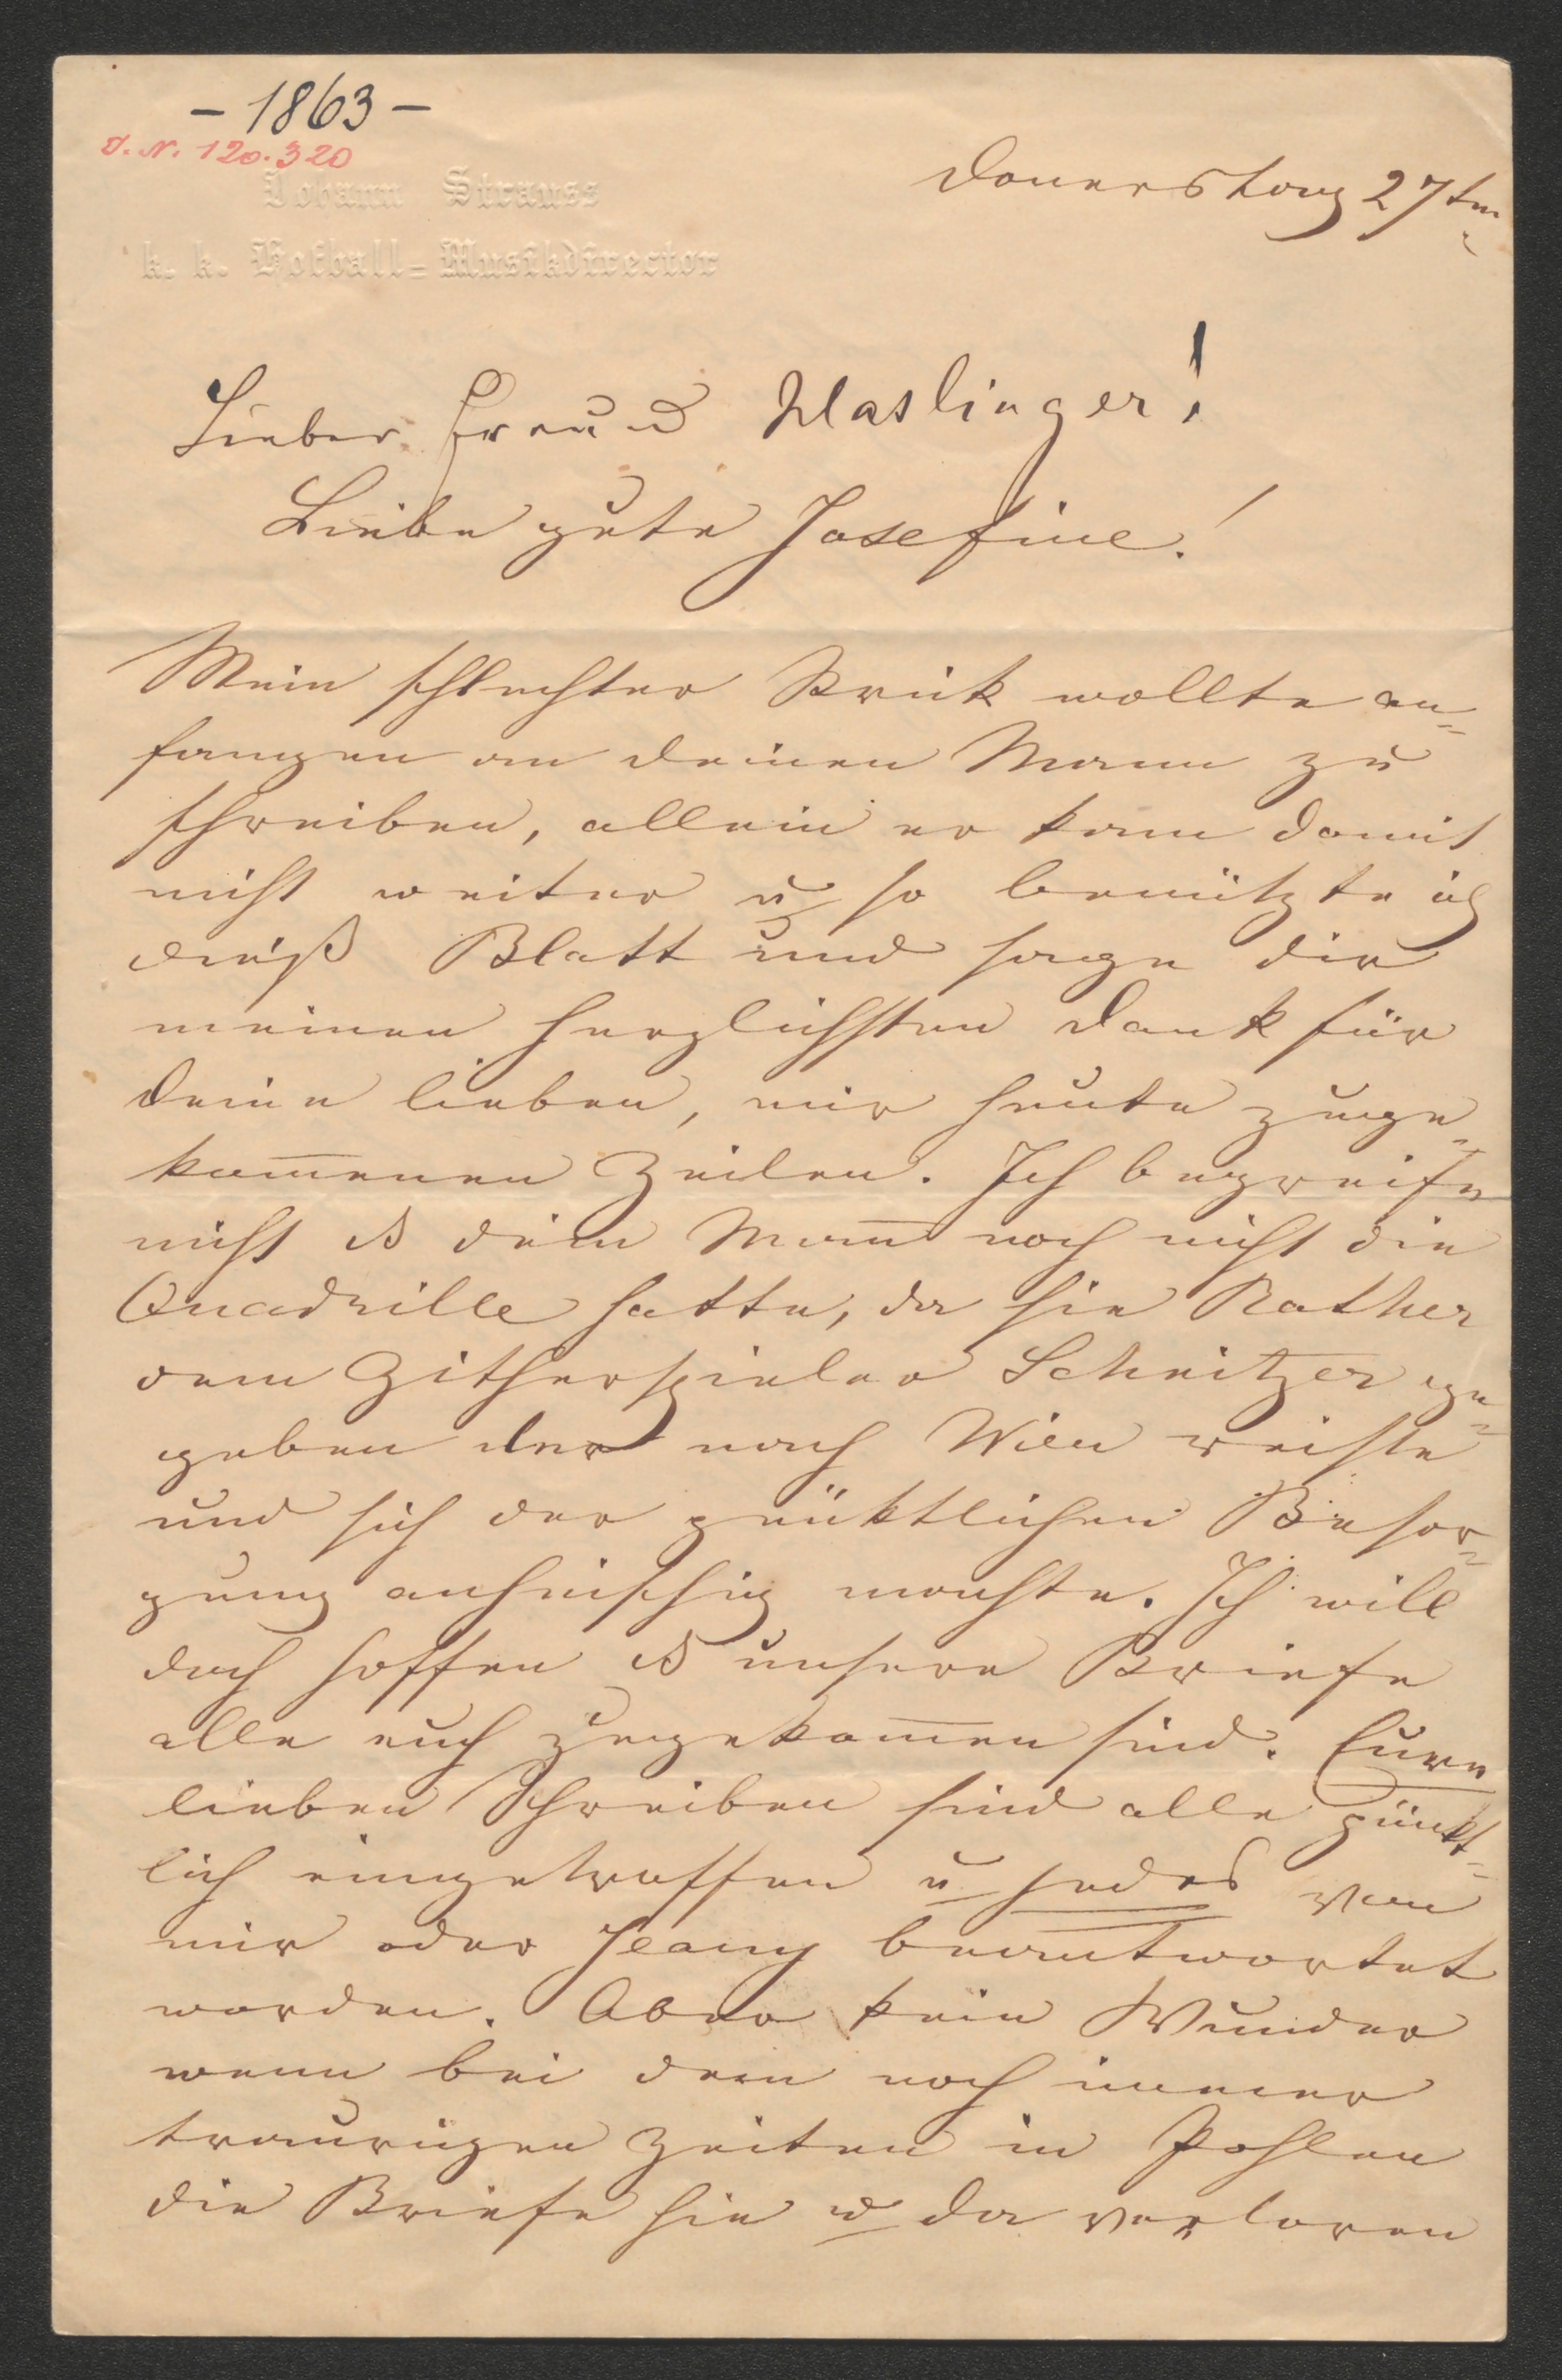 - 1863 -
J. N. 120.320
Johann Strauss
k. k. Hofball-Musikdirector
Donnerstag 27tn
Lieber Freund Haslinger!
Liebe gute Josefine!
Mein schlechter Strick wollte an=
fangen an deinen Mann zu
schreiben, allein er kam damit
nicht weiter u so benützte ich
dieß Blatt und sage dir
meinen herzlichsten Dank für
deine lieben, mir heute zuge=
kom̅enen Zeilen. Ich begreife
nicht ds dein Man̅ noch nicht die
Quadrille hatte, da sie Rather
dem Zitherspieler Schnitzer ge=
geben der nach Wien reiste
und sich der pünktlichen Besor=
gung anheischig machte. Ich will
doch hoffen ds unsere Briefe
alle euch zugekom̅en sind. Eure
lieben Schreiben sind alle pünkt=
lich eingetroffen u jedes von
mir oder Jeany beantwortet
worden. Aber kein Wunder
wenn bei den noch immer
traurigen Zeiten in Pohlen
die Briefe hie u da verloren